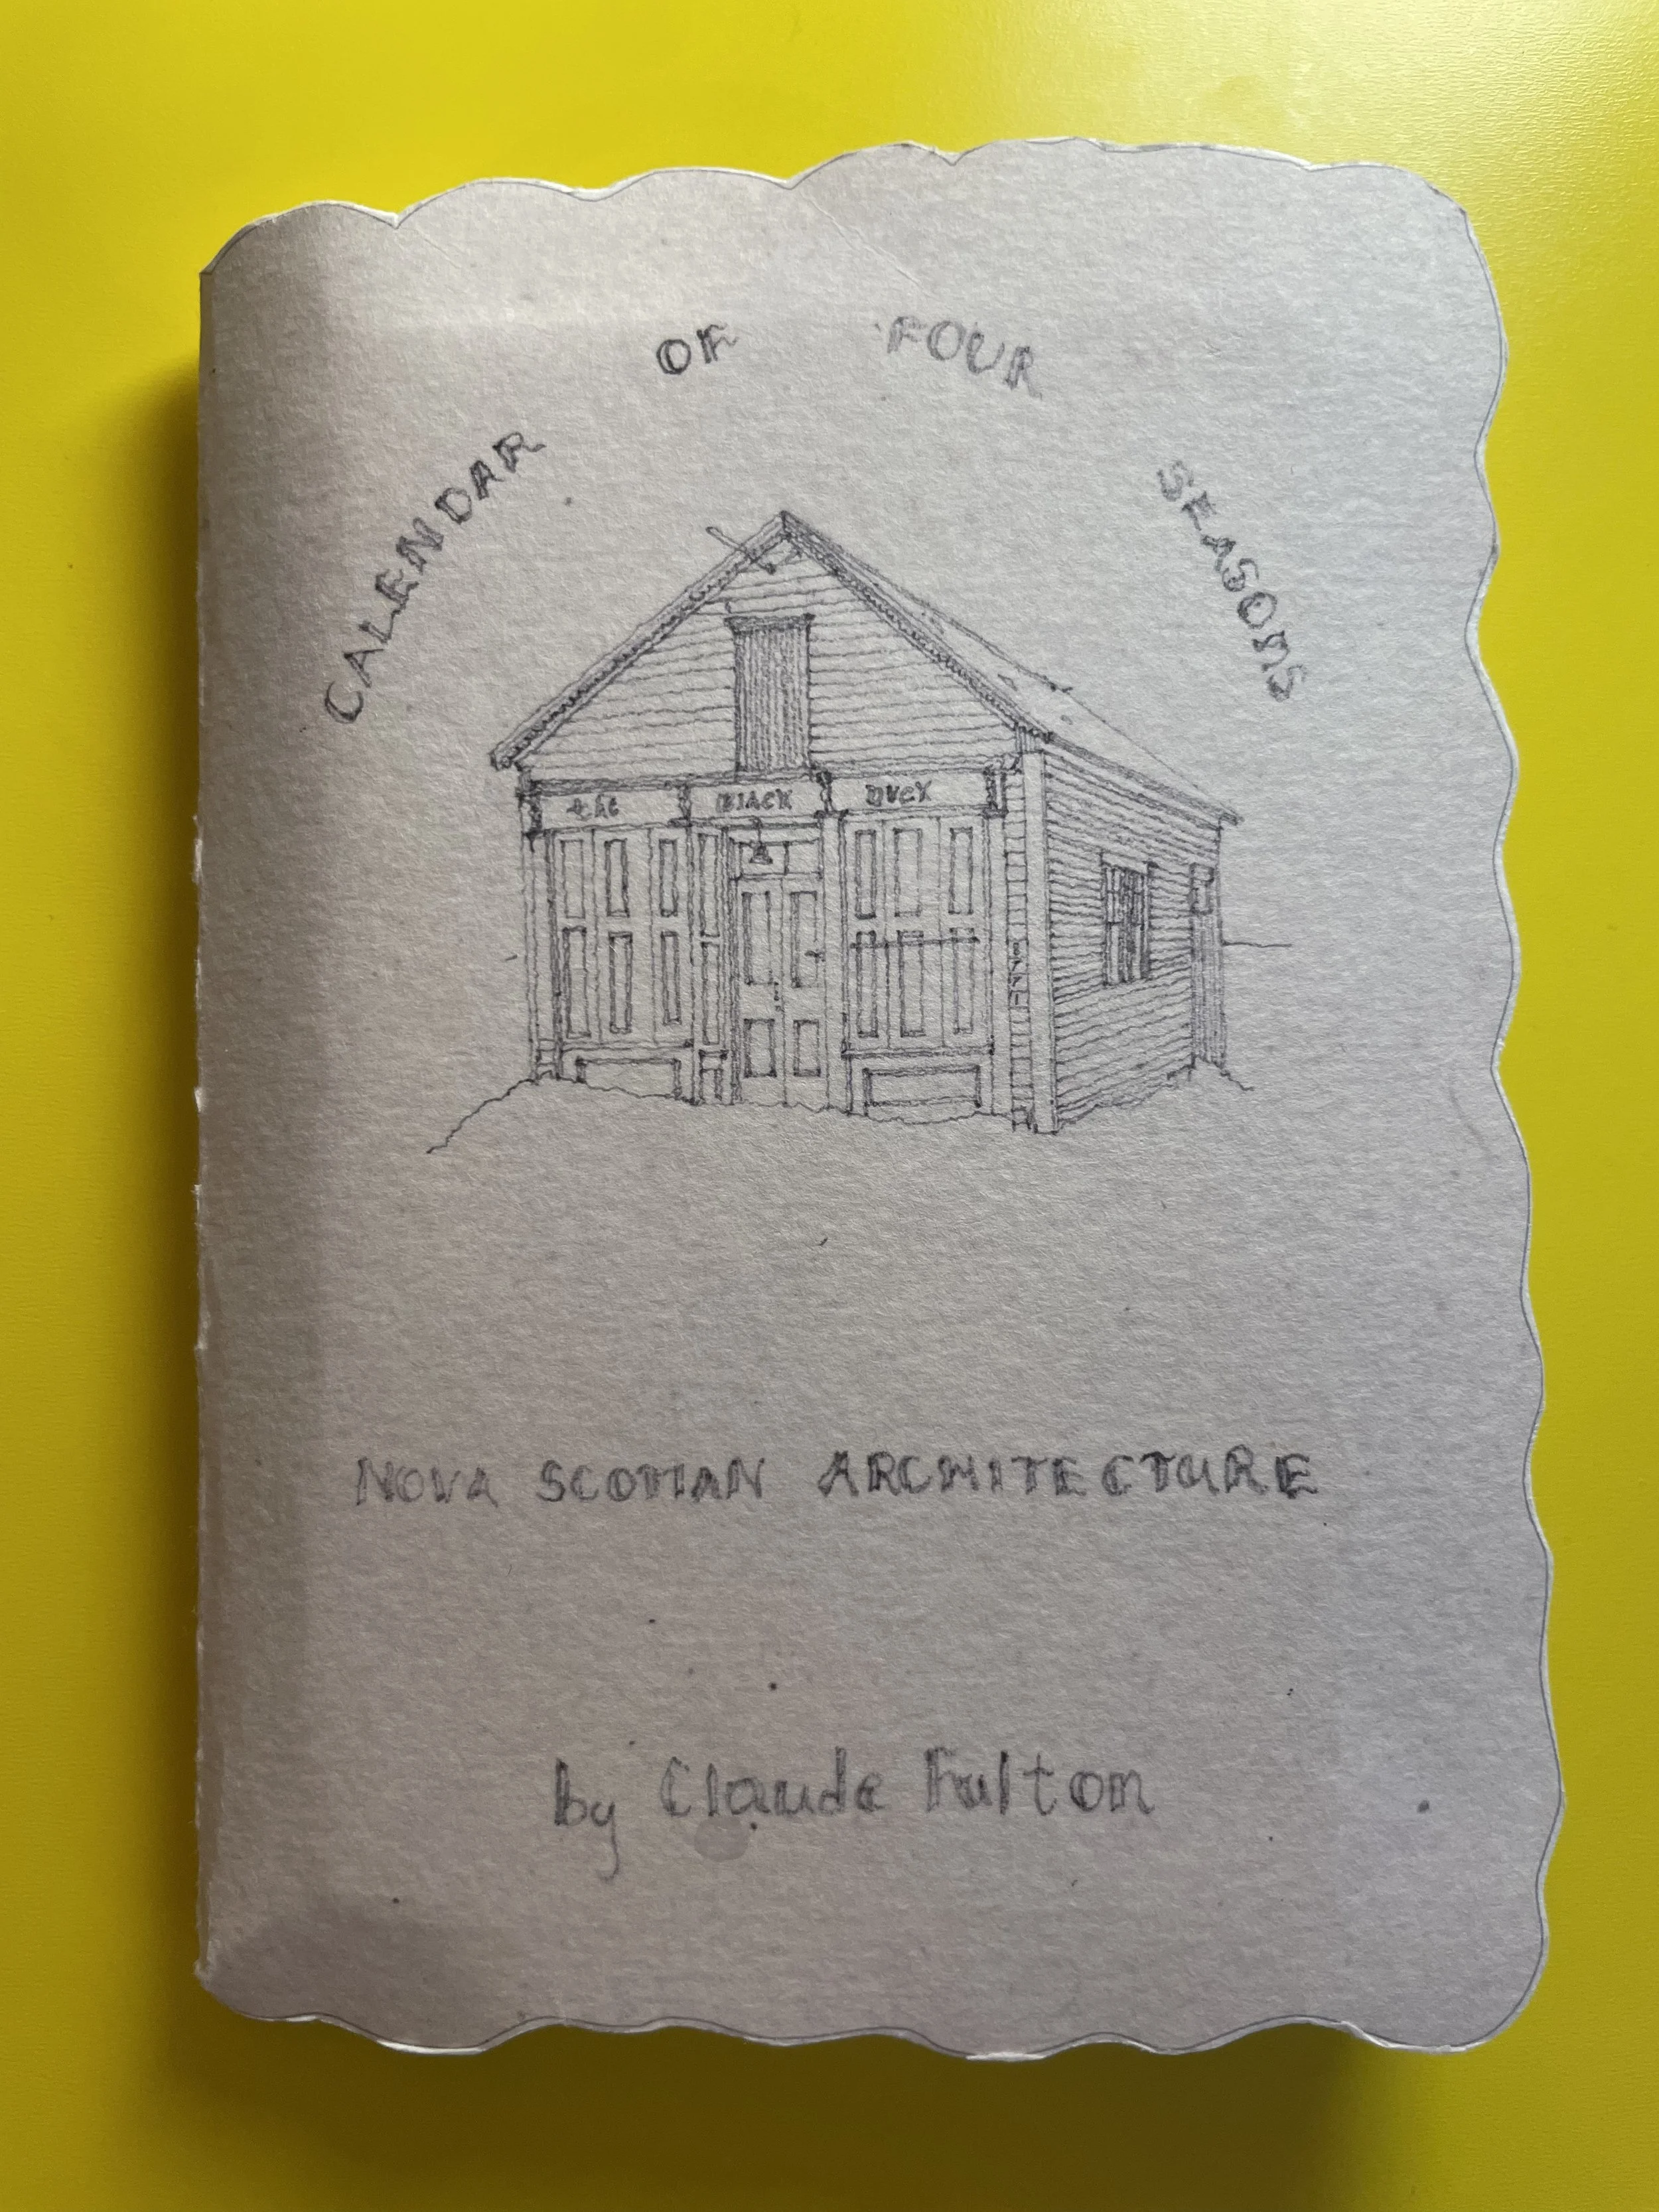 CALENDAR OF FOUR SEASONS
the BLACK DUCK
NOVA SCOTIAN ARCHITECTURE
by Claude Fulton